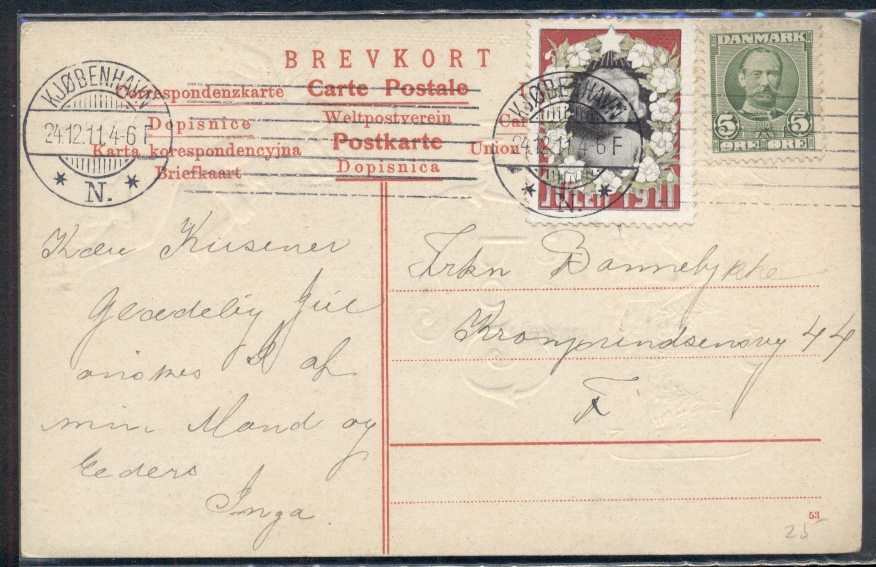 BREVKORT
Correspondenzkarte Carte Postale
Dopisnice Weltpostverein
Karta korespondencyjna Postkarte Union
Briefkaart Dopisnica
KJØBENHAVN
24.12.11 4-6 F
* N. *
KJØBENHAVN
24.12.11 4-6 F
* N. *
JULEN 1911
DANMARK
5 5
ØRE ØRE
Kære
Glædelig Jul
ønskes D af
min Mand og
Eeders
Inga.
Frkn
Kronprindsensvej 44
F
53
25